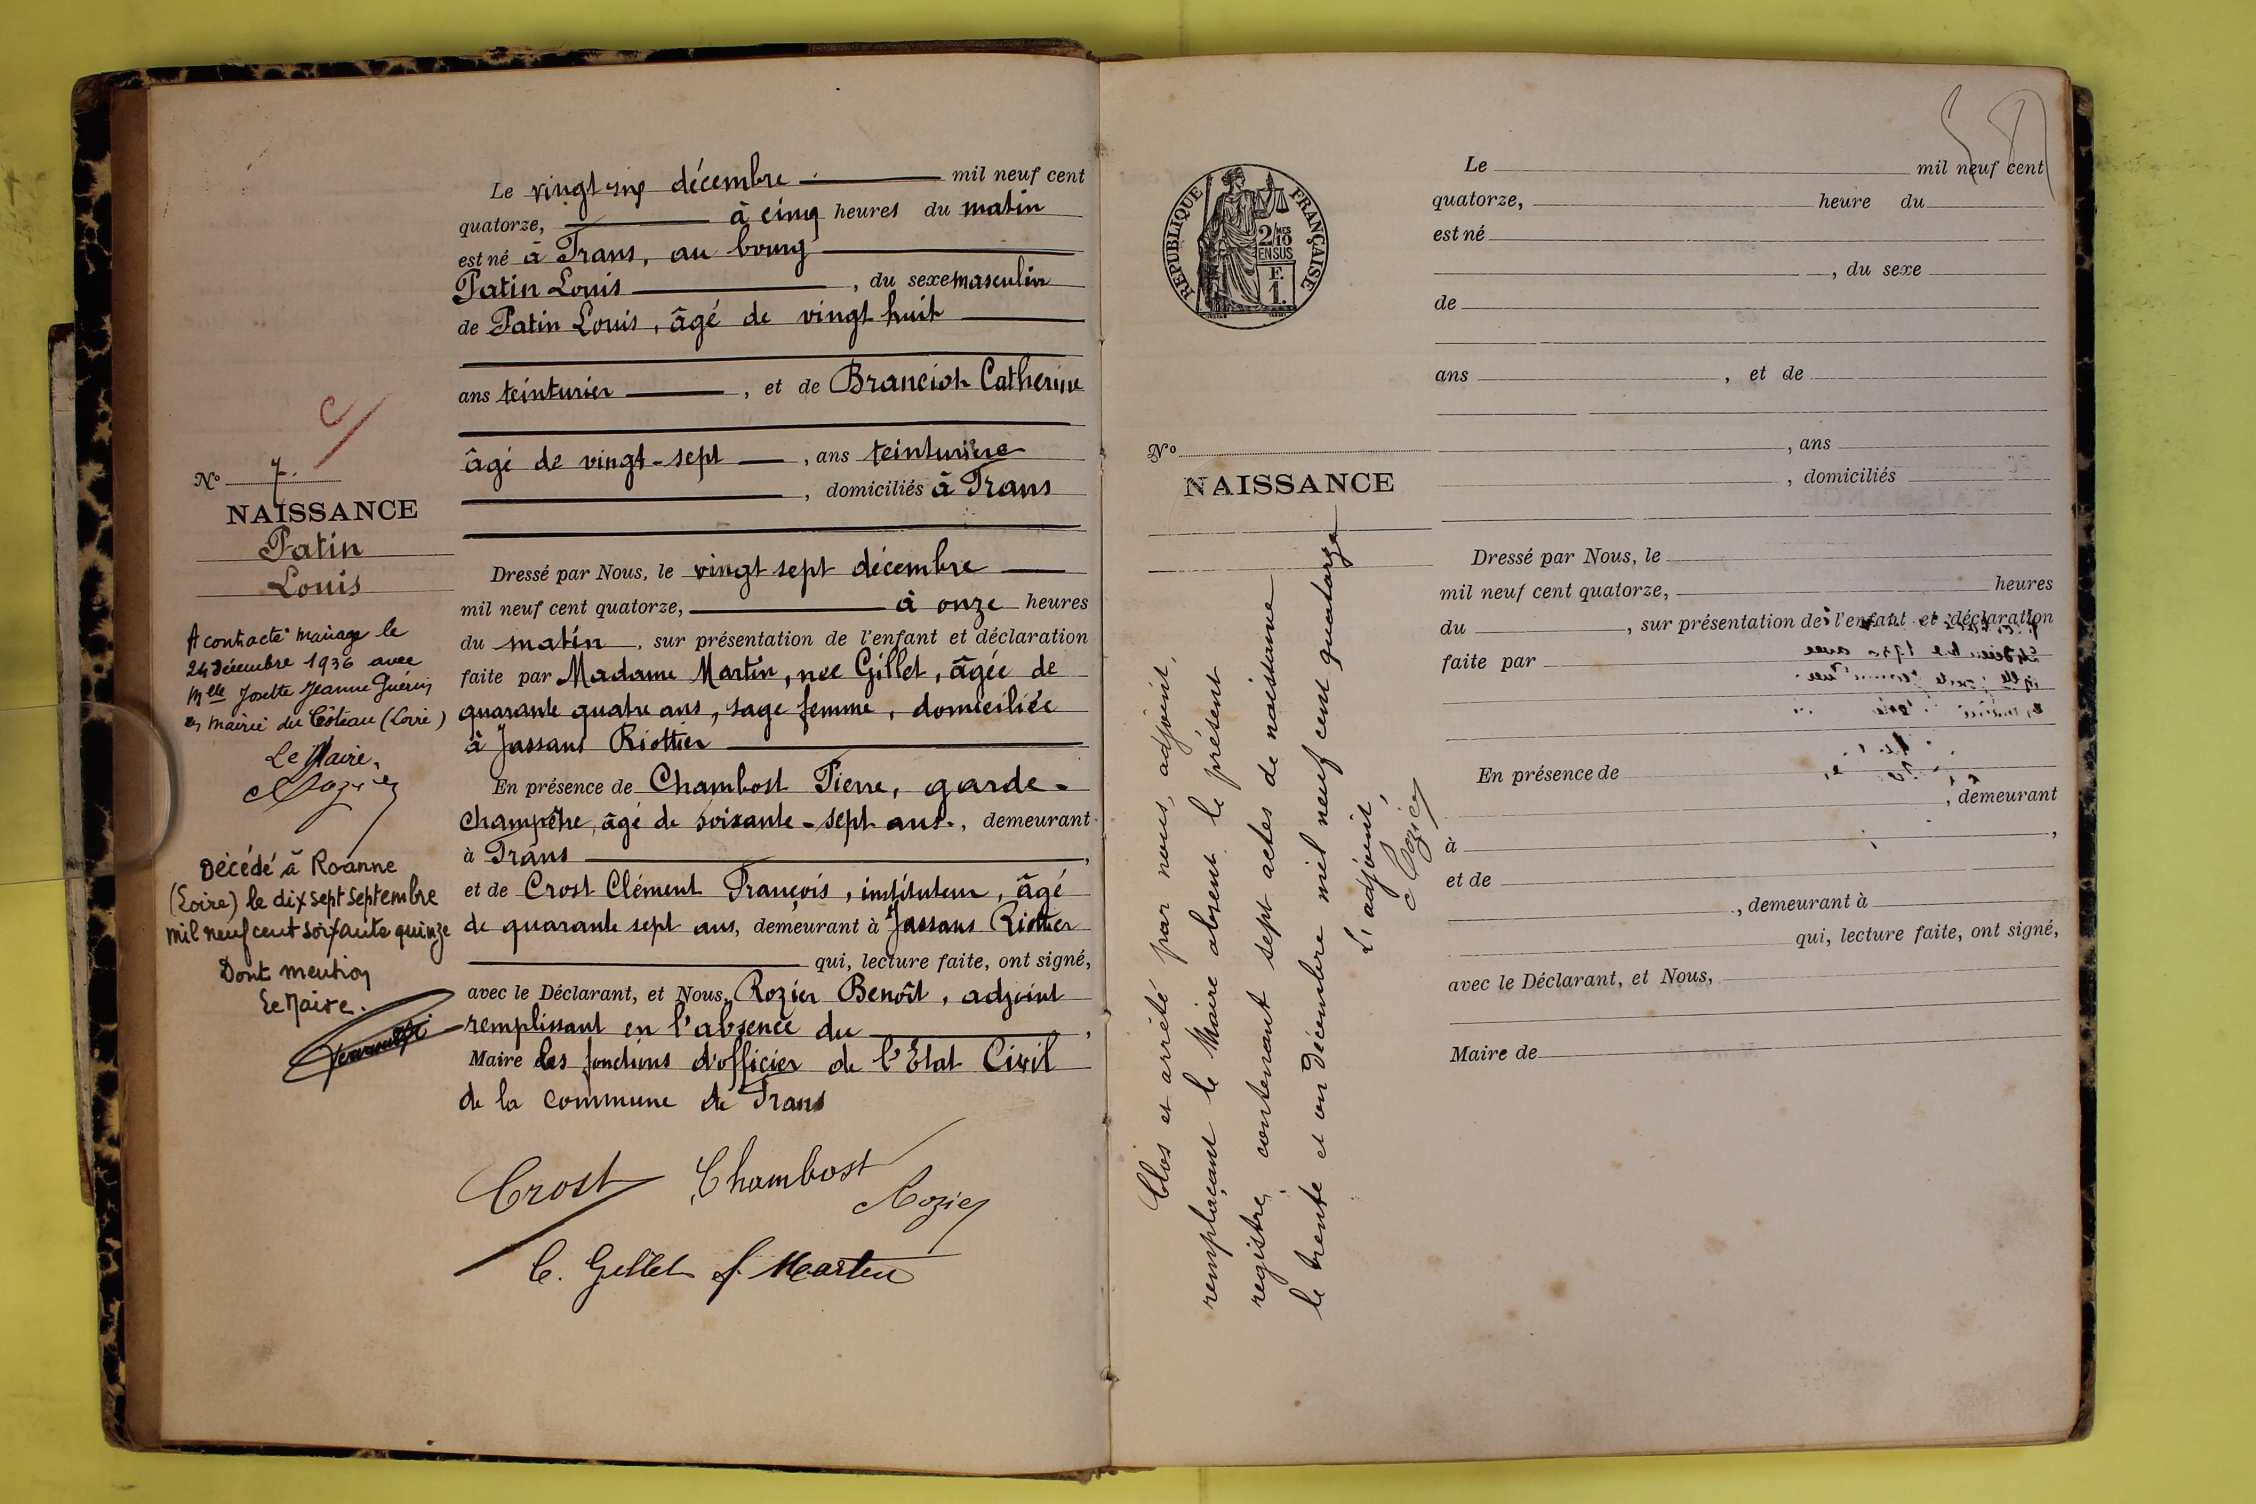 Le vingt six décembre mil neuf cent
quatorze, à cinq heures du matin
est né à Trans, au bourg
Patin Louis, du sexe masculin
de Patin Louis, âgé de vingt huit
ans teinturier, et de Branciot Catherine
âgé de vingt-sept, ans teinturière
, domiciliés à Trans
Dressé par Nous, le vingt sept décembre
mil neuf cent quatorze, à onze heures
du matin, sur présentation de l'enfant et déclaration
faite par Madame Martin, née Gillet, âgée de
quarante quatre ans, sage femme, domiciliée
à Jassans Riottier
En présence de Chambost Pierre, garde-
champêtre, âgé de soixante-sept ans, demeurant
à Trans,
et de Crost Clément François, instituteur, âgé
de quarante sept ans, demeurant à Jassans Riottier
qui, lecture faite, ont signé,
avec le Déclarant, et Nous, Rozier Benoît, adjoint
remplissant en l'absence du,
Maire les fonctions d'officier de l'Etat Civil
de la commune de Trans
Crost Chambost
Rozier
C. Gillet f. Martin
C
No 7.
NAISSANCE
Patin
Louis
A contracté mariage le
24 décembre 1936 avec
Mlle Josette Jeanne Guérin
en mairie du Côteau (Loire)
Le Maire,
Rozier
Décédé à Roanne
(Loire) le dix sept septembre
mil neuf cent soixante quinze
Dont mention
Le Maire.
RÉPUBLIQUE FRANÇAISE
2/10 MES
EN SUS
F.
1.
No
NAISSANCE
Clos et arrêté par nous, adjoint,
remplaçant le Maire absent le présent
registre, contenant sept actes de naissance
le trente et un décembre mil neuf cent quatorze
L'adjoint,
Rozier
Le mil neuf cent
quatorze, heure du
est né
, du sexe
de
ans , et de
, ans
, domiciliés
Dressé par Nous, le
mil neuf cent quatorze, heures
du , sur présentation de l'enfant et déclaration
faite par
En présence de
, demeurant
à ,
et de
, demeurant à
qui, lecture faite, ont signé,
avec le Déclarant, et Nous,
Maire de